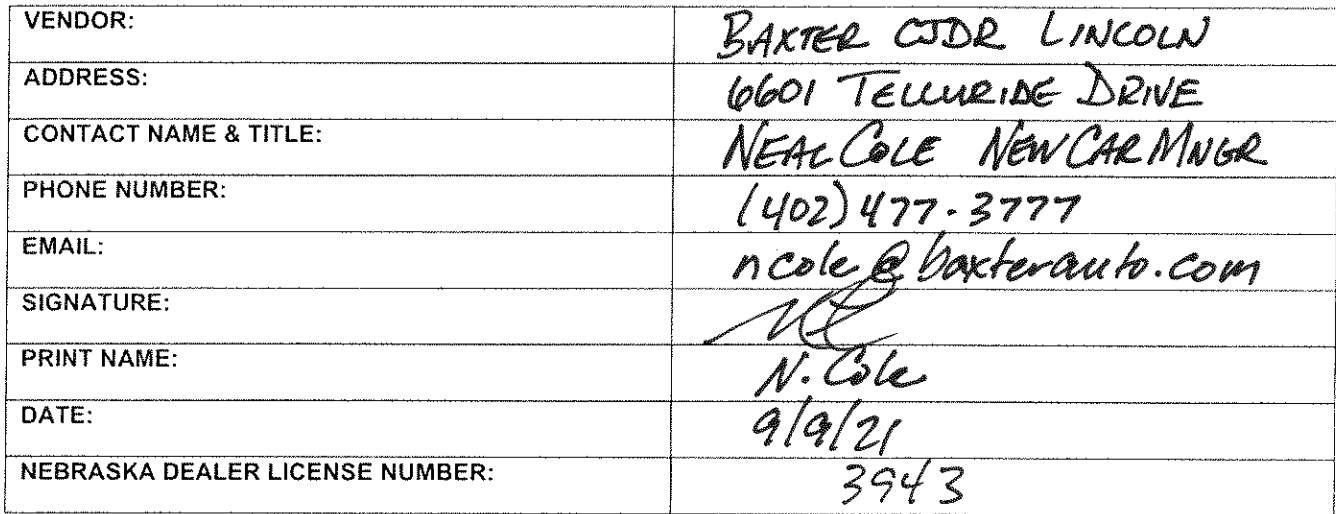 VENDOR: BAXTER CJDR LINCOLN
ADDRESS: 6601 TELLURIDE DRIVE
CONTACT NAME & TITLE: NEAL COLE NEW CAR MNGR
PHONE NUMBER: (402) 477-3777
EMAIL: ncole@baxterauto.com
SIGNATURE:
PRINT NAME: N. Cole
DATE: 9/9/21
NEBRASKA DEALER LICENSE NUMBER: 3943